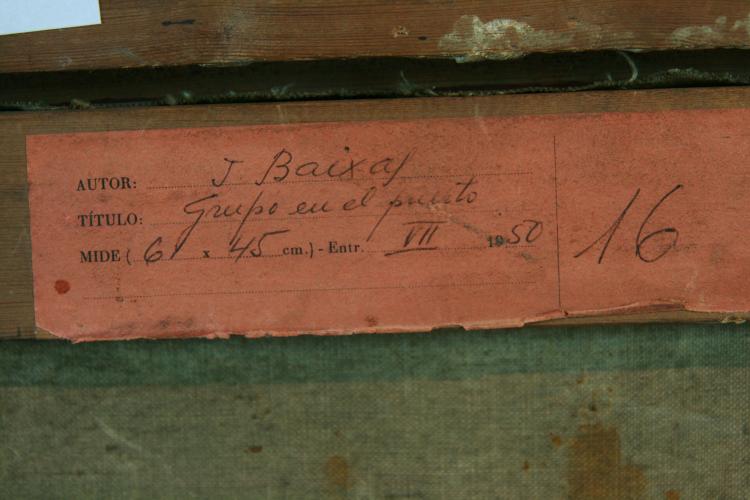 AUTOR: J. Baixas
TÍTULO: Grupo en el puerto
MIDE ( 61 x 45 cm.) - Entr. VII 1950
16